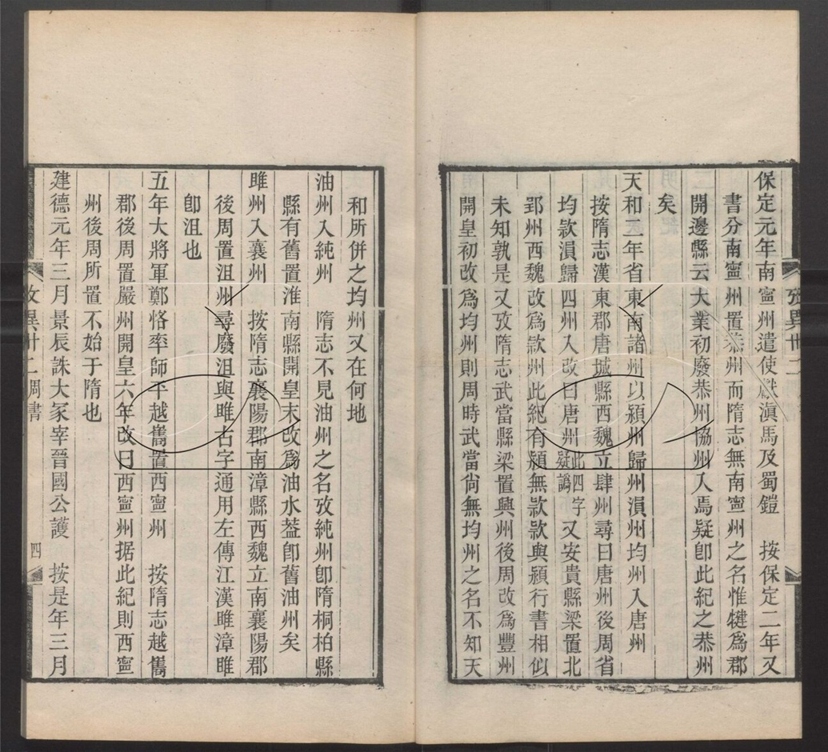 保定元年南寧州遣使獻滇馬及蜀鎧　按保定二年又
書分南寧州置恭州而隋志無南寧州之名惟犍爲郡
開邊縣云大業初廢恭州協州入焉疑卽此紀之恭州
矣
天和二年省東南諸州以潁州歸州溳州均州入唐州
按隋志漢東郡唐城縣西魏立肆州尋曰唐州後周省
均款溳歸四州入改曰唐州此四字疑譌又安貴縣梁置北
郢州西魏改爲款州此紀有潁無款款與潁行書相似
未知孰是又攷隋志武當縣梁置興州後周改爲豐州
開皇初改爲均州則周時武當尚無均州之名不知天
和所併之均州又在何地
油州入純州　隋志不見油州之名攷純州卽隋桐柏縣
縣有舊置淮南縣開皇末改爲油水葢卽舊油州矣
雎州入襄州　按隋志襄陽郡南漳縣西魏立南襄陽郡
後周置沮州尋廢沮與雎古字通用左傳江漢雎漳雎
卽沮也
五年大將軍鄭恪率師平越嶲置西寧州　按隋志越嶲
郡後周置嚴州開皇六年改曰西寧州据此紀則西寧
州後周所置不始于隋也
建德元年三月景辰誅大冢宰晉國公護　按是年三月
攷異卅二
攷異卅二周書
四